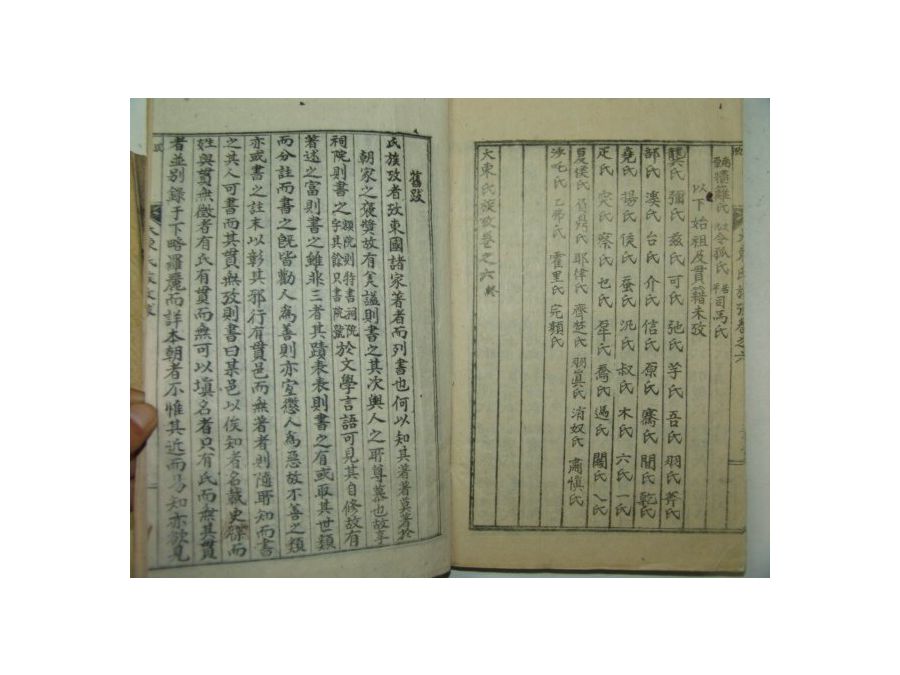 以下始祖及貫籍未攷
龔氏 彌氏 玆氏 可氏 弛氏 芋氏 吾氏 羽氏 斧氏
部氏 溪氏 台氏 介氏 信氏 原氏 騫氏 間氏 乾氏
堯氏 楊氏 侯氏 蚕氏 汎氏 叔氏 木氏 六氏 一氏
疋氏 突氏 察氏 乜氏 喬氏 過氏 閻氏
夏侯氏 耶律氏 齊楚氏 羽眞氏 消奴氏 肅愼氏
沙吒氏 乙弗氏 霍里氏 完顏氏
大東氏族攷卷之六 終
舊跋
氏族攷者攷東國諸家著者而列書也何以知其著著莫著於
朝家之褒獎故有美謚則書之其次輿人之所尊慕也故享
祠院則書之額院則特書祠院字其餘只書院號於文學言語可見其自修故有
著述之富則書之雖非三者其蹟表表則書之有或取其世類
而分註而書之旣皆勸人爲善則亦宜懲人爲惡故不善之類
亦或書之註末以彰其邪行有貫邑而無著者則隨所知而書
之其人可書而其貫無攷則書曰某邑以俟知者名載史牒而
姓與貫無徵者有氏有貫而無可以塡名者只有氏而無其貫
者並別錄于下略羅麗而詳本朝者不惟其近而易知亦欲見